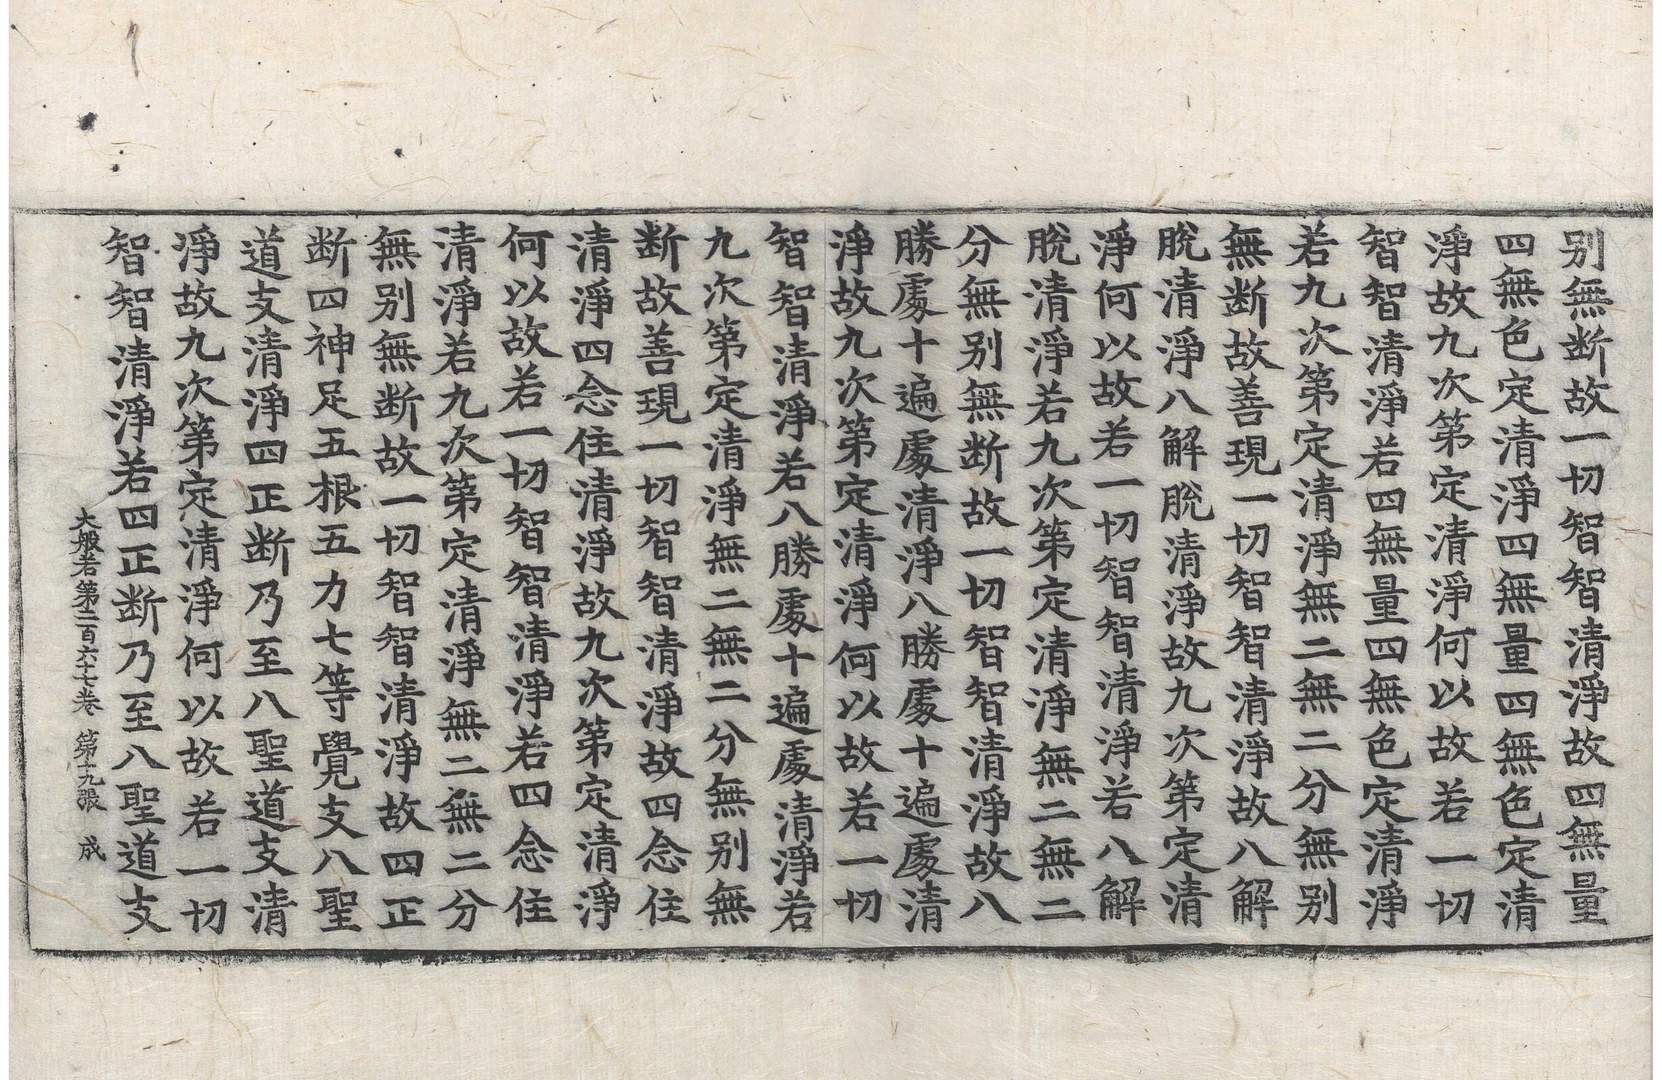 别無断故一切智智清淨故四無量
四無色定清淨四無量四無色定清
淨故九次第定清淨何以故若一切
智智清淨若四無量四無色定清淨
若九次第定清淨無二無二分無别
無断故善現一切智智清淨故八解
脫清淨八解脫清淨故九次第定清
淨何以故若一切智智清淨若八解
脫清淨若九次第定清淨無二無二
分無别無断故一切智智清淨故八
勝處十遍處清淨八勝處十遍處清
淨故九次第定清淨何以故若一切
智智清淨若八勝處十遍處清淨若
九次第定清淨無二無二分無别無
断故善現一切智智清淨故四念住
清淨四念住清淨故九次第定清淨
何以故若一切智智清淨若四念住
清淨若九次第定清淨無二無二分
無别無断故一切智智清淨故四正
断四神足五根五力七等覺支八聖
道支清淨四正断乃至八聖道支清
淨故九次第定清淨何以故若一切
智智清淨若四正断乃至八聖道支
大般若第二百六十七卷 第十九張 成